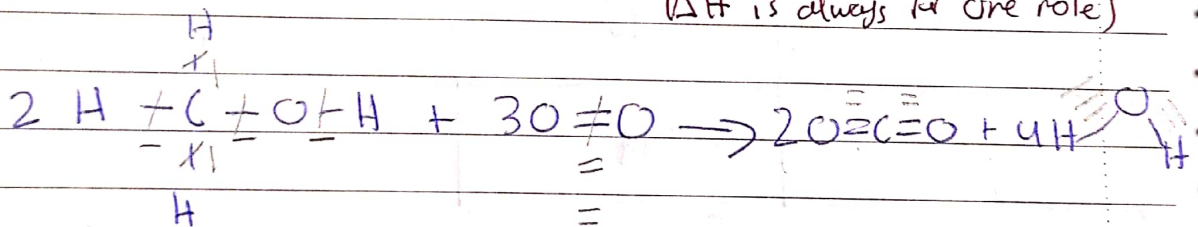 (ΔH is always for one role)
H
2 H - C - O - H + 3O=O → 2O=C=O + 4H O H
H